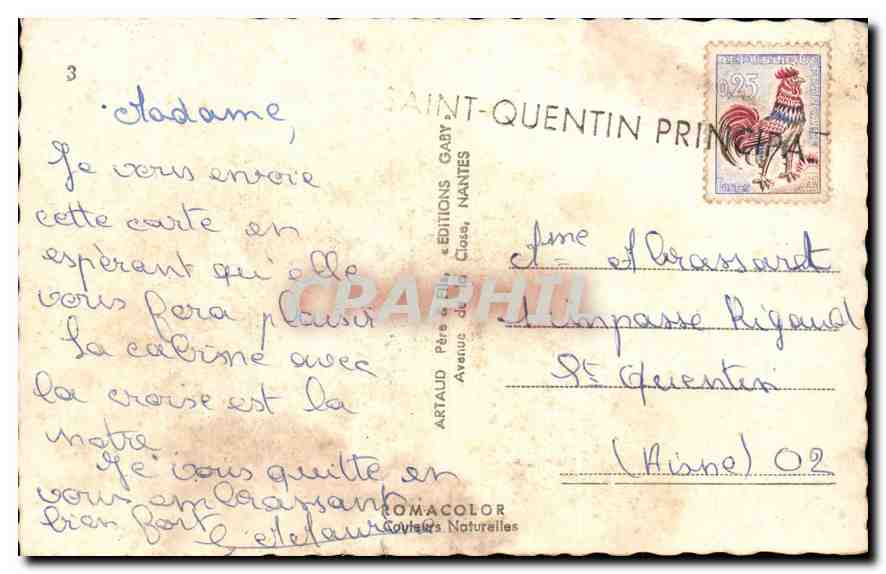 3
Madame,
Je vous envoie
cette carte en
espèrant qu'elle
vous fera plaisir
La cabine avec
la croise est la
notre
Je vous quitte en
vous embrassant
bien fort
SAINT-QUENTIN PRINCIPA
0,25
POSTES
ARTAUD Père & Fils, «EDITIONS GABY»
Avenue de la Close, NANTES
CPAPHIL
Mme
impasse Rigaud
St Quentin
(Aisne) 02
ROMACOLOR
Couleurs Naturelles